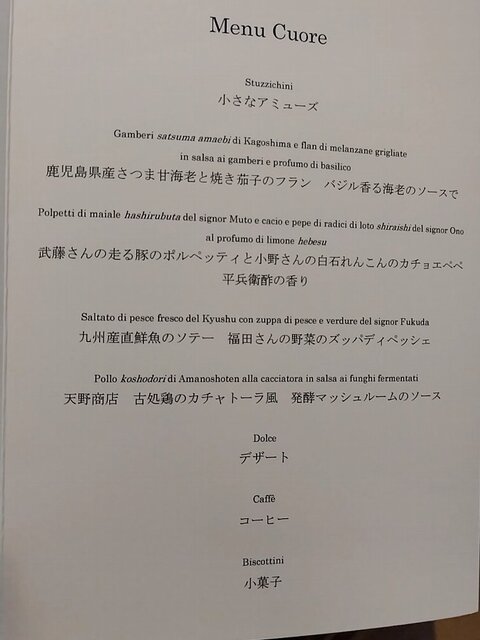 Menu Cuore
Stuzzichini
小さなアミューズ
Gamberi satsuma amaebi di Kagoshima e flan di melanzane grigliate
in salsa ai gamberi e profumo di basilico
鹿児島県産さつま甘海老と焼き茄子のフラン　バジル香る海老のソースで
Polpetti di maiale hashirubuta del signor Muto e cacio e pepe di radici di loto shiraishi del signor Ono
al profumo di limone hebesu
武藤さんの走る豚のポルペッティと小野さんの白石れんこんのカチョエペペ
平兵衛酢の香り
Saltato di pesce fresco del Kyushu con zuppa di pesce e verdure del signor Fukuda
九州産直鮮魚のソテー　福田さんの野菜のズッパディペッシェ
Pollo koshodori di Amanoshoten alla cacciatora in salsa ai funghi fermentati
天野商店　古処鶏のカチャトーラ風　発酵マッシュルームのソース
Dolce
デザート
Caffè
コーヒー
Biscottini
小菓子